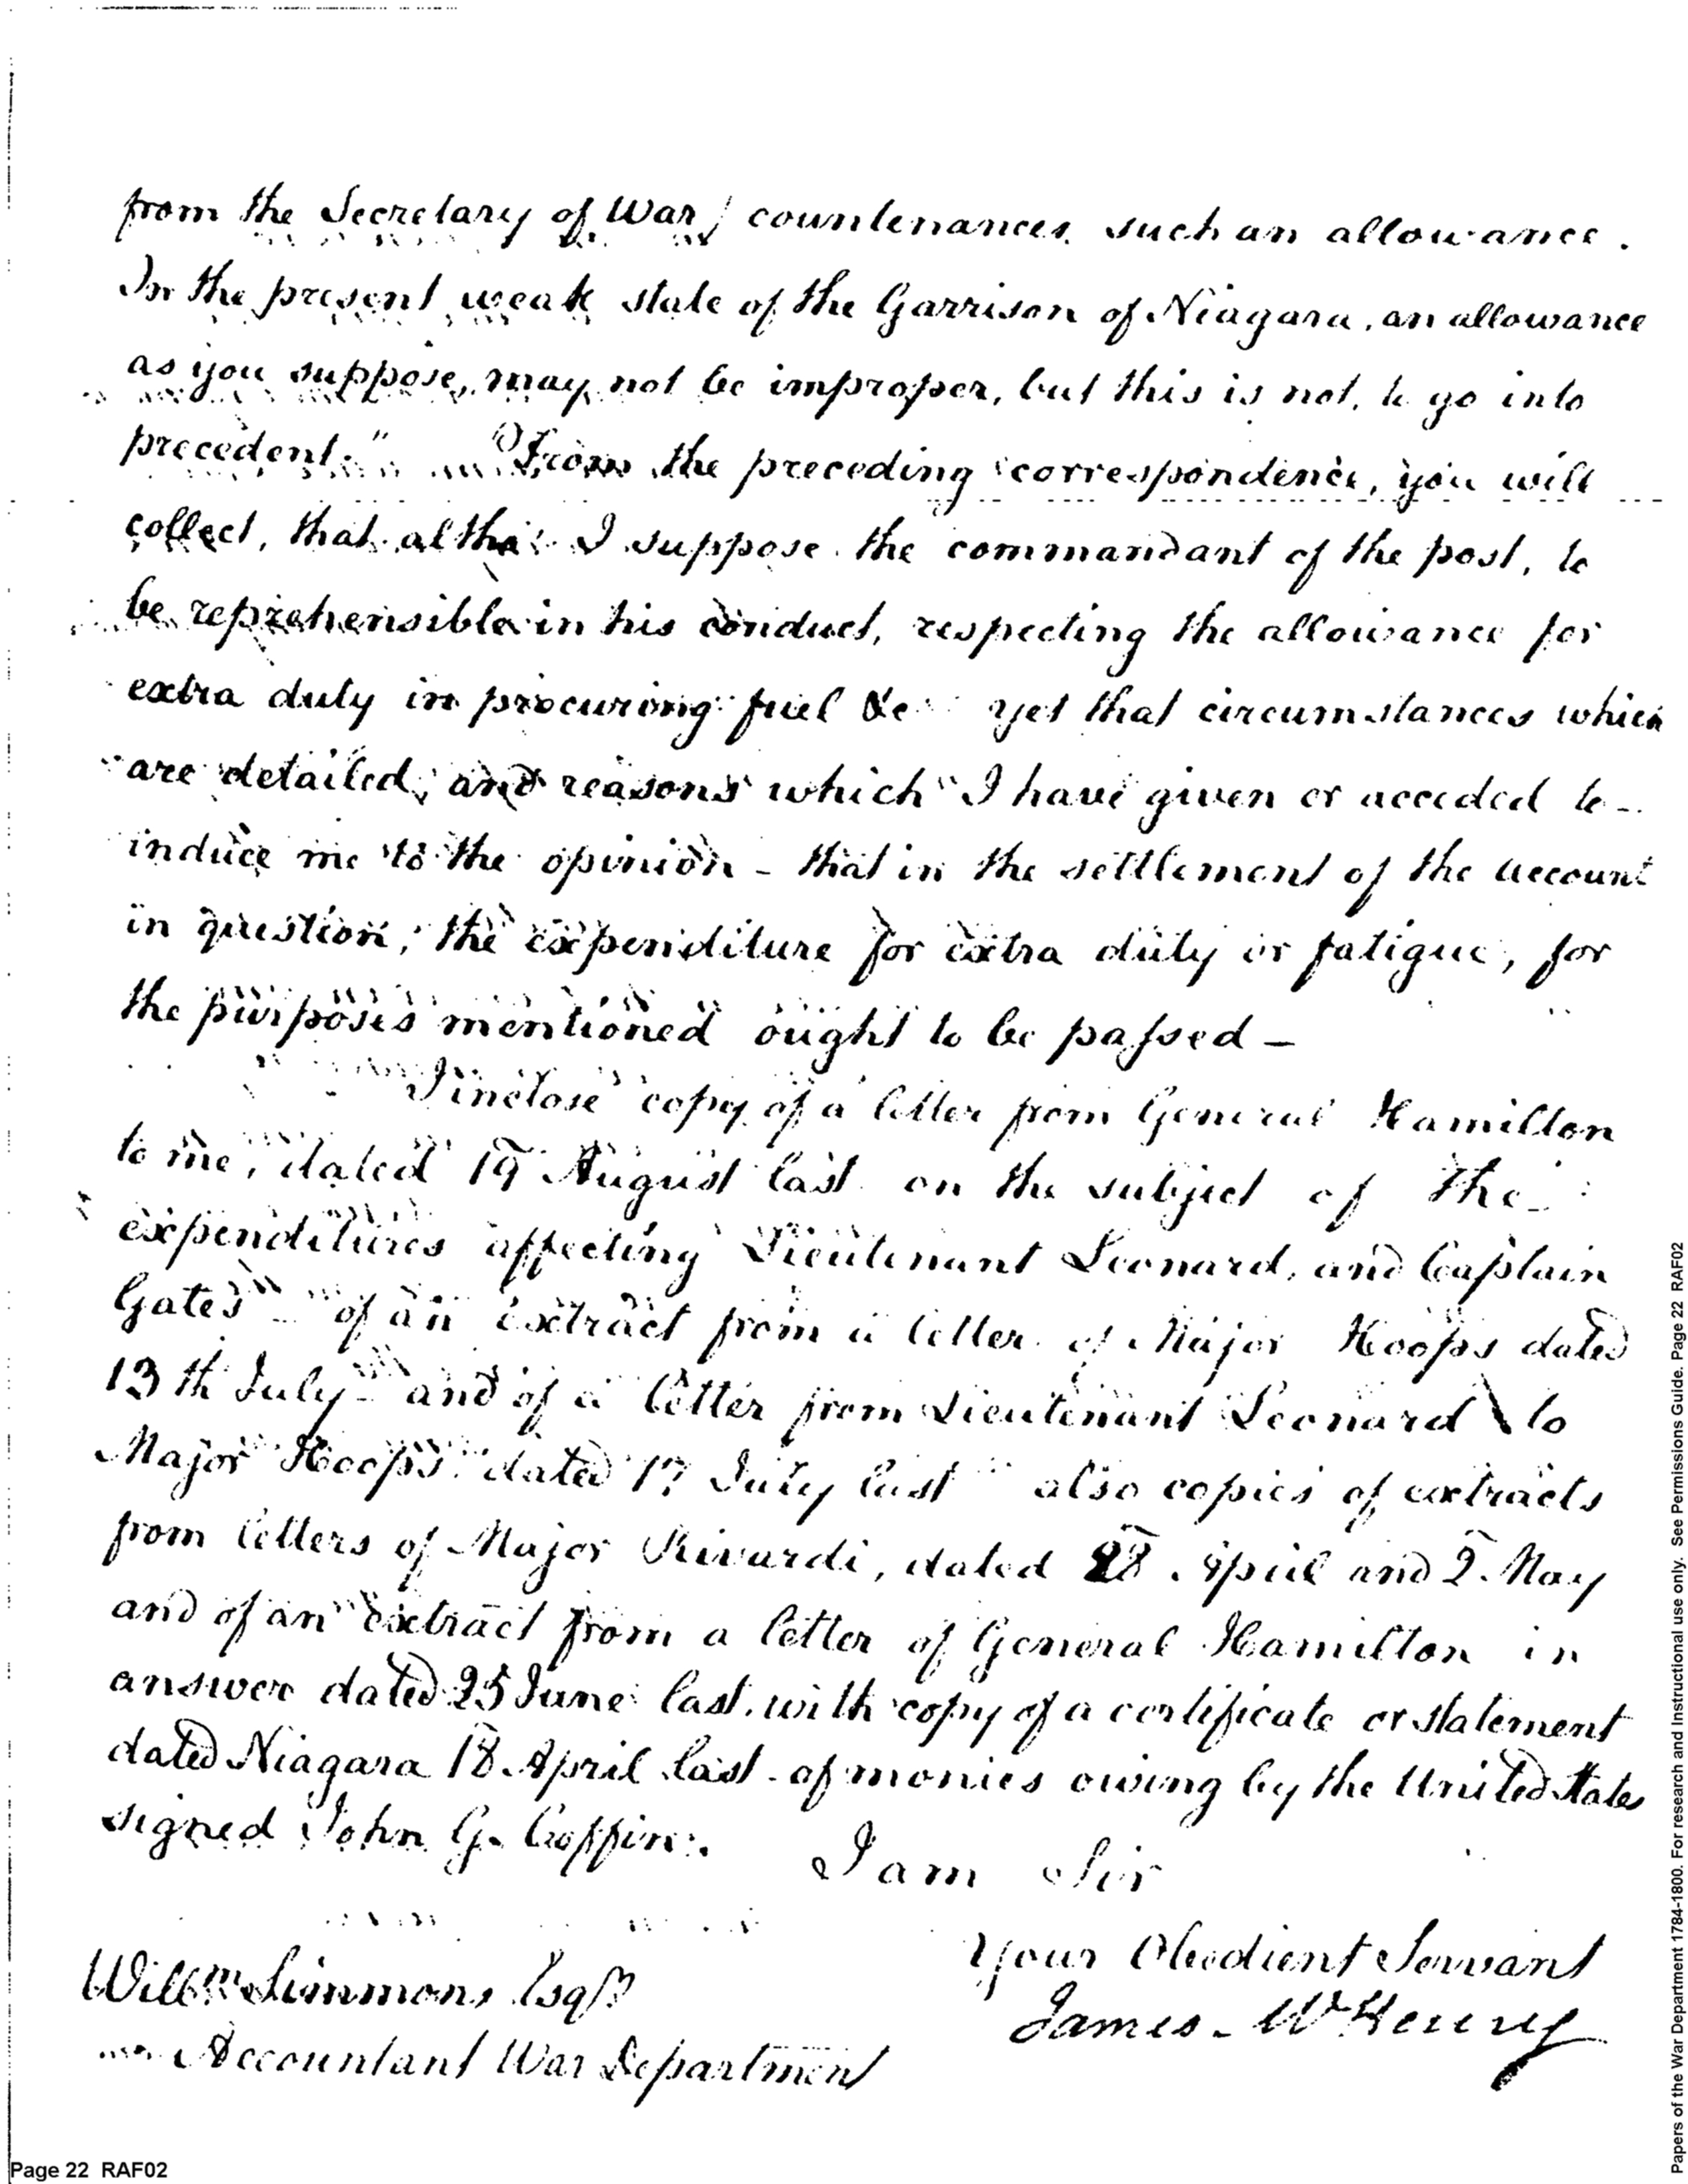 from the Secretary of War) countenances such an allowance.
In the present weak state of the Garrison of Niagara, an allowance
as you suppose, may not be improper, but this is not, to go into
precedent." From the preceding correspondence, you will
collect, that altho' I suppose the commandant of the post, to
be reprehensible in his conduct, respecting the allowance for
extra duty in procuring fuel &c yet that circumstances which
are detailed, and reasons which I have given or acceded to -
induce me to the opinion - that in the settlement of the account
in question, the expenditure for extra duty or fatigue, for
the purposes mentioned ought to be passed -
I inclose copy of a letter from General Hamilton
to me, dated 19 August last on the subject of the
expenditures affecting Lieutenant Leonard, and Captain
Gates - of an extract from a letter of Major Hoops dated
13th July - and of a letter from Lieutenant Leonard to
Major Hoops dated 17 July last also copies of extracts
from letters of Major Rivardi, dated 28 April and 2 May
and of an extract from a letter of General Hamilton in
answer dated 25 June last, with copy of a certificate or statement
dated Niagara 18 April last - of monies owing by the United States
signed John G. Coffin.
I am Sir
Your Obedient Servant
James McHenry
Willm Simmons Esqr
Accountant War Department
Page 22 RAF02
Papers of the War Department 1784-1800. For research and instructional use only. See Permissions Guide. Page 22 RAF02